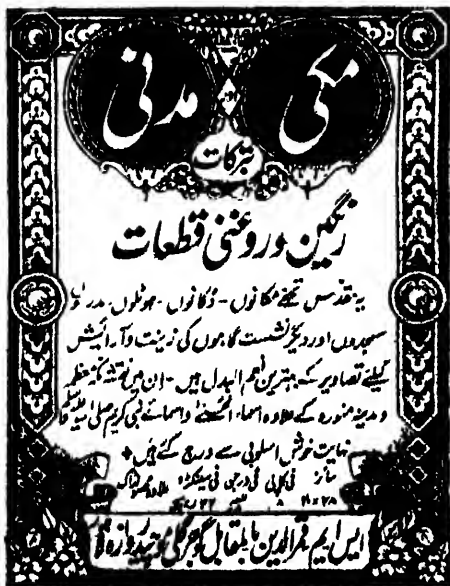 مکی اور مدنی
تبرکات
رنگین و روغنی قطعات
یہ مقدس تحفے مکانوں - دکانوں - ہوٹلوں - مدرسوں
مسجدوں اور دیگر نشست گاہوں کی زینت و آرائش
کیلئے تصاویر کے بہترین نعم البدل ہیں - ان میں نقشہ مکہ معظمہ
و مدینہ منورہ کے علاوہ اسماء الحسنےٰ و اسمائے نبی کریم صلی اللہ علیہ وسلم
نہایت خوش اسلوبی سے درج کئے گئے ہیں +
سائز فی کاپی فی درجن فی سینکڑہ علاوہ محصولڈاک
ایس ایم قمر الدین بالمقابل گوجر گلی موچیدروازہ لاہور